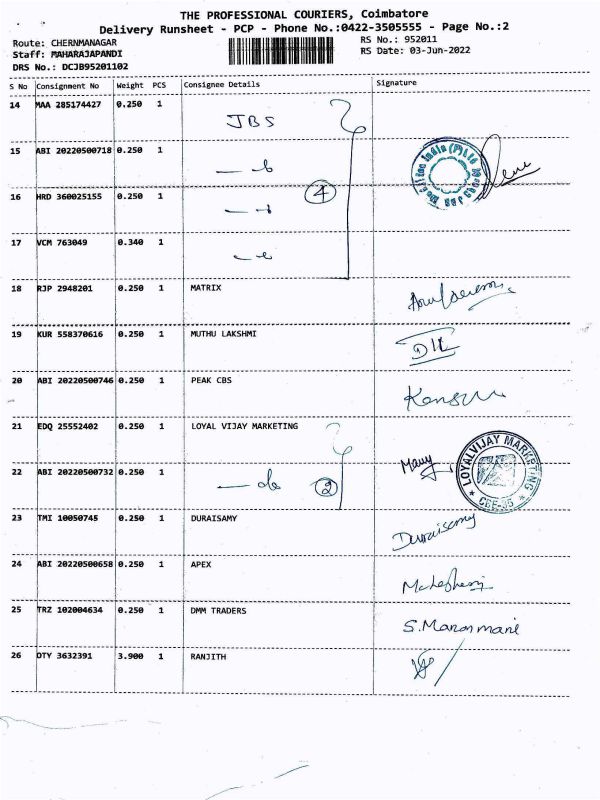 THE PROFESSIONAL COURIERS, Coimbatore
Delivery Runsheet - PCP - Phone No.:0422-3505555 - Page No.:2
Route: CHERNMANAGAR
RS No.: 952011
Staff: MAHARAJAPANDI
RS Date: 03-Jun-2022
DRS No.: DCJB95201102
S No Consignment No Weight PCS Consignee Details Signature
14 MAA 285174427 0.250 1 JBS
15 ABI 20220500718 0.250 1
16 HRD 360025155 0.250 1 4
17 VCM 763049 0.340 1
18 RJP 2948201 0.250 1 MATRIX
19 KUR 558370616 0.250 1 MUTHU LAKSHMI
20 ABI 20220500746 0.250 1 PEAK CBS
21 EDQ 25552402 0.250 1 LOYAL VIJAY MARKETING
22 ABI 20220500732 0.250 1 — do 2 LOYALVIJAY MARKETING * CBE-35 *
23 TMI 10050745 0.250 1 DURAISAMY Duraisamy
24 ABI 20220500658 0.250 1 APEX
25 TRZ 102004634 0.250 1 DMM TRADERS S.Manonmani
26 OTY 3632391 3.900 1 RANJITH